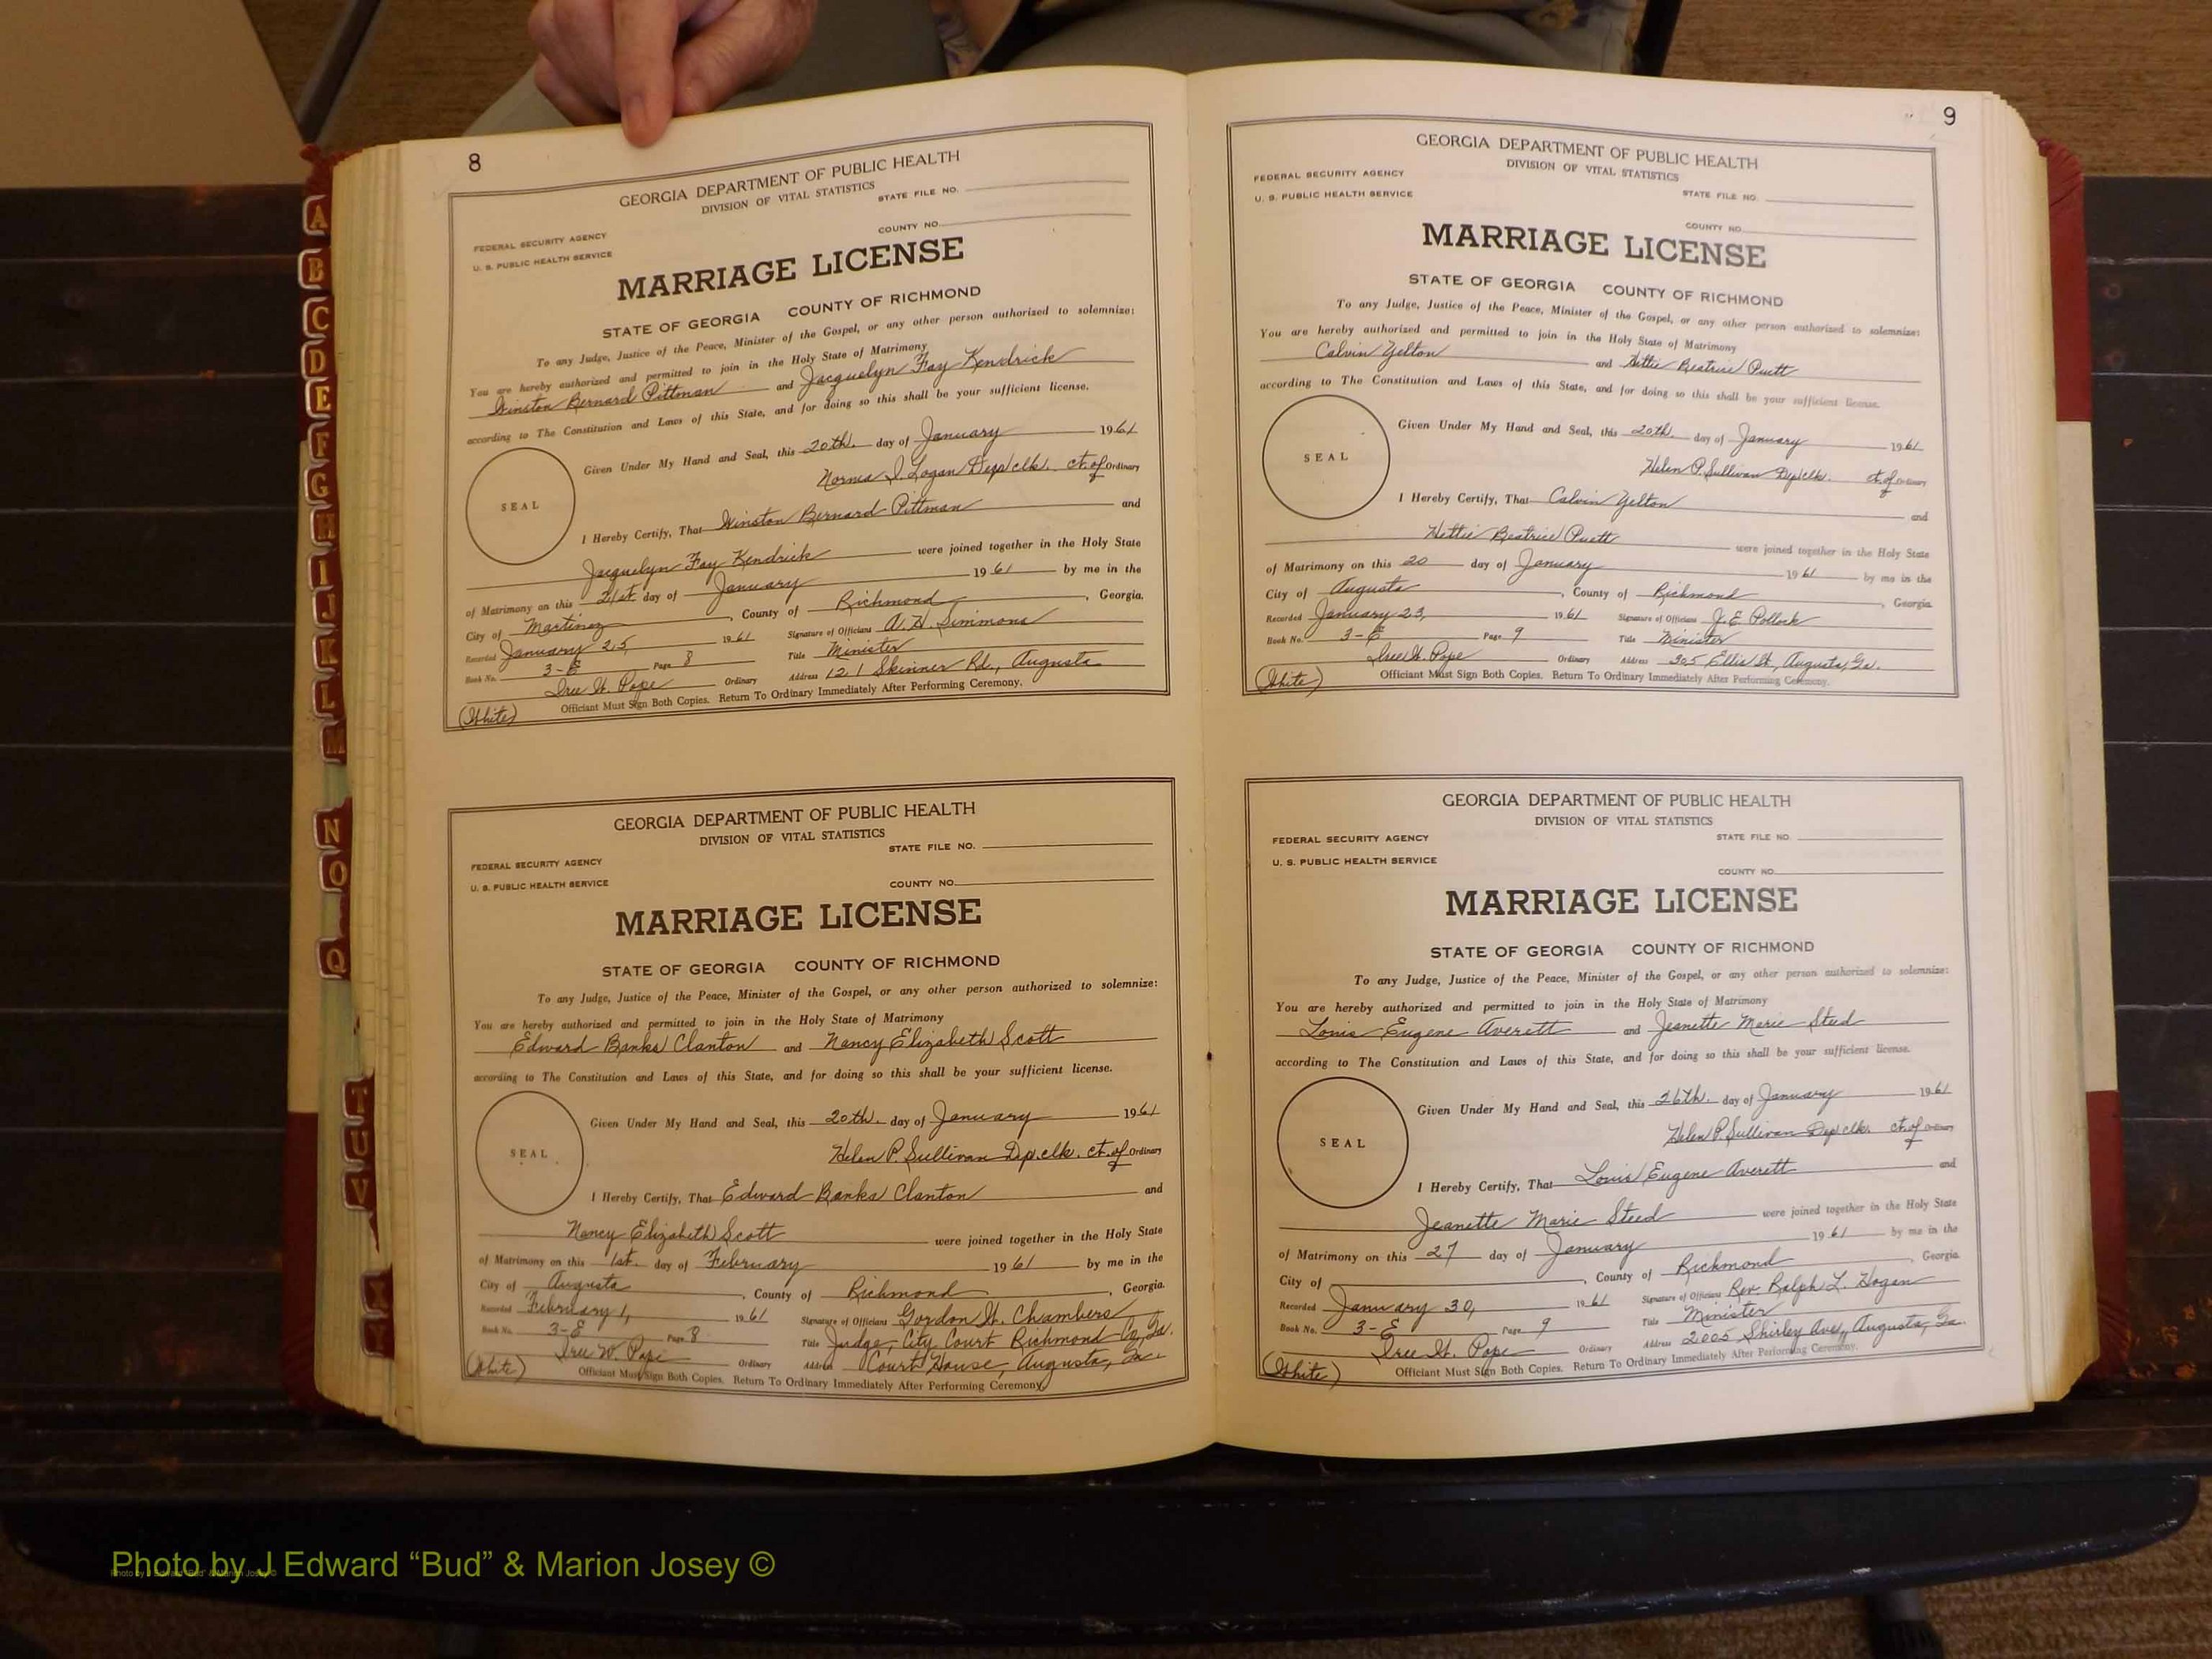 8
GEORGIA DEPARTMENT OF PUBLIC HEALTH
DIVISION OF VITAL STATISTICS
STATE FILE NO.
FEDERAL SECURITY AGENCY
COUNTY NO.
U. S. PUBLIC HEALTH SERVICE
MARRIAGE LICENSE
STATE OF GEORGIA COUNTY OF RICHMOND
To any Judge, Justice of the Peace, Minister of the Gospel, or any other person authorized to solemnize:
You are hereby authorized and permitted to join in the Holy State of Matrimony
Winston Bernard Pittman and Jacquelyn Fay Kendrick
according to The Constitution and Laws of this State, and for doing so this shall be your sufficient license.
Given Under My Hand and Seal, this 20th. day of January 1961
Norma J. Logan Dep clk. ct. of Ordinary
SEAL
I Hereby Certify, That Winston Bernard Pittman and
Jacquelyn Fay Kendrick were joined together in the Holy State
of Matrimony on this 21st. day of January 1961 by me in the
City of Martinez, County of Richmond, Georgia.
Recorded January 25, 1961 Signature of Officiant A. H. Simmons
Book No. 3-E Page 8 Title Minister
Iree W. Pope Ordinary Address 121 Skinner Rd., Augusta
(White) Officiant Must Sign Both Copies. Return To Ordinary Immediately After Performing Ceremony.
GEORGIA DEPARTMENT OF PUBLIC HEALTH
DIVISION OF VITAL STATISTICS
STATE FILE NO.
FEDERAL SECURITY AGENCY
U. S. PUBLIC HEALTH SERVICE
COUNTY NO.
MARRIAGE LICENSE
STATE OF GEORGIA COUNTY OF RICHMOND
To any Judge, Justice of the Peace, Minister of the Gospel, or any other person authorized to solemnize:
You are hereby authorized and permitted to join in the Holy State of Matrimony
Edward Banks Clanton and Nancy Elizabeth Scott
according to The Constitution and Laws of this State, and for doing so this shall be your sufficient license.
Given Under My Hand and Seal, this 20th. day of January 1961
Helen P. Sullivan Dep. clk. ct. of Ordinary
SEAL
I Hereby Certify, That Edward Banks Clanton and
Nancy Elizabeth Scott were joined together in the Holy State
of Matrimony on this 1st. day of February 1961 by me in the
City of Augusta, County of Richmond, Georgia.
Recorded February 1, 1961 Signature of Officiant Gordon W. Chambers
Book No. 3-E Page 8 Title Judge, City Court Richmond Co, Ga.
Iree W. Pope Ordinary Address Court House, Augusta, Ga.
(White) Officiant Must Sign Both Copies. Return To Ordinary Immediately After Performing Ceremony
9
GEORGIA DEPARTMENT OF PUBLIC HEALTH
DIVISION OF VITAL STATISTICS
FEDERAL SECURITY AGENCY
STATE FILE NO.
U. S. PUBLIC HEALTH SERVICE
COUNTY NO.
MARRIAGE LICENSE
STATE OF GEORGIA COUNTY OF RICHMOND
To any Judge, Justice of the Peace, Minister of the Gospel, or any other person authorized to solemnize:
You are hereby authorized and permitted to join in the Holy State of Matrimony
Calvin Yelton and Hettie Beatrice Puett
according to The Constitution and Laws of this State, and for doing so this shall be your sufficient license.
Given Under My Hand and Seal, this 20th. day of January 1961
Helen P. Sullivan Dep clk. ct. of Ordinary
SEAL
I Hereby Certify, That Calvin Yelton and
Hettie Beatrice Puett were joined together in the Holy State
of Matrimony on this 20 day of January 1961 by me in the
City of Augusta, County of Richmond, Georgia
Recorded January 23, 1961 Signature of Officiant J. E. Pollock
Book No. 3-E Page 9 Title Minister
Iree W. Pope Ordinary Address 305 Ellis St, Augusta, Ga.
(White) Officiant Must Sign Both Copies. Return To Ordinary Immediately After Performing Ceremony.
GEORGIA DEPARTMENT OF PUBLIC HEALTH
DIVISION OF VITAL STATISTICS
FEDERAL SECURITY AGENCY
STATE FILE NO.
U. S. PUBLIC HEALTH SERVICE
COUNTY NO.
MARRIAGE LICENSE
STATE OF GEORGIA COUNTY OF RICHMOND
To any Judge, Justice of the Peace, Minister of the Gospel, or any other person authorized to solemnize:
You are hereby authorized and permitted to join in the Holy State of Matrimony
Louis Eugene Averett and Jeanette Marie Steed
according to The Constitution and Laws of this State, and for doing so this shall be your sufficient license.
Given Under My Hand and Seal, this 26th. day of January 1961
Helen P. Sullivan Dep clk. ct. of Ordinary
SEAL
I Hereby Certify, That Louis Eugene Averett and
Jeanette Marie Steed were joined together in the Holy State
of Matrimony on this 27 day of January 1961 by me in the
City of , County of Richmond, Georgia
Recorded January 30, 1961 Signature of Officiant Rev. Ralph L. Hogan
Book No. 3-E Page 9 Title Minister
Iree W. Pope Ordinary Address 2005 Shirley Ave., Augusta, Ga.
(White) Officiant Must Sign Both Copies. Return To Ordinary Immediately After Performing Ceremony.
A
B
C
D
E
F
G
H
I
J
K
L
M
N
O
Q
T
U
V
Y
Photo by J Edward “Bud” & Marion Josey ©
Photo by J Edward “Bud” & Marion Josey ©